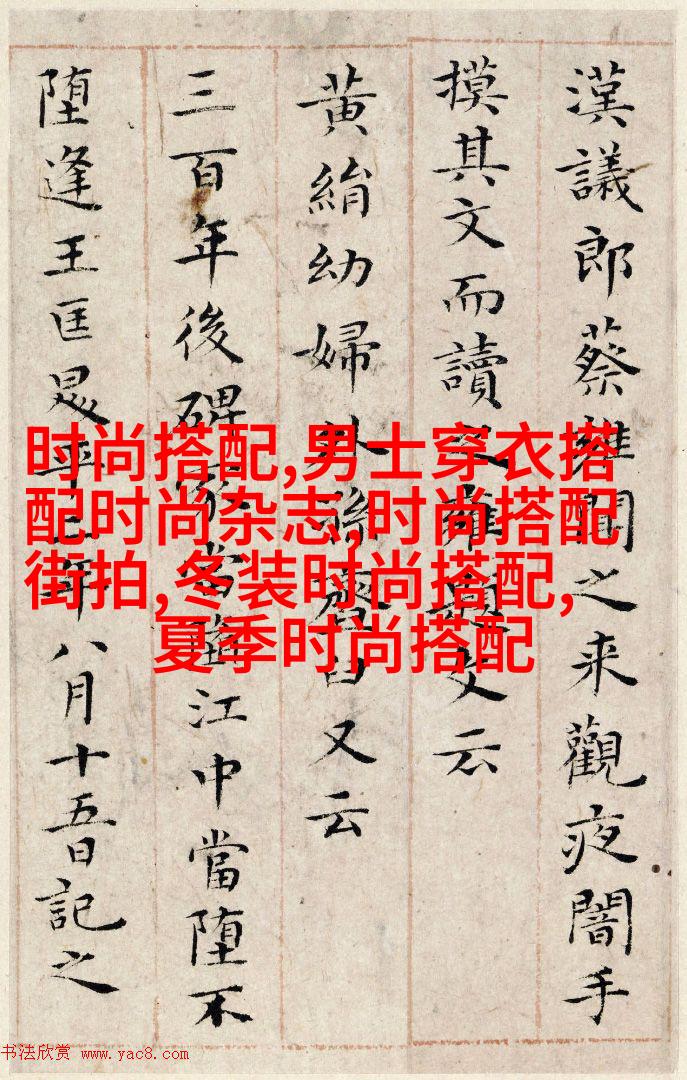 漢議郎蔡雍聞之来觀夜闇手
摸其文而讀之雍題文云
黄絹幼婦外孫齏臼又云
三百年後碑冢當堕江中當堕不
堕逢王匡平二年八月十五日記之
时尚搭配,男士穿衣搭
配时尚杂志,时尚搭配
街拍,冬装时尚搭配,
夏季时尚搭配
书法欣赏 www.yac8.com